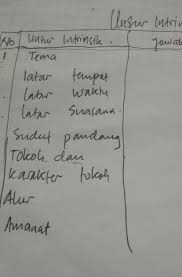 Unsur Intrin
No Unsur Intrinsik. Jawab
1 Tema
latar tempat
latar waktu
latar suasana.
Sudut pandang
Tokoh dan
karakter tokoh
Alur
Amanat